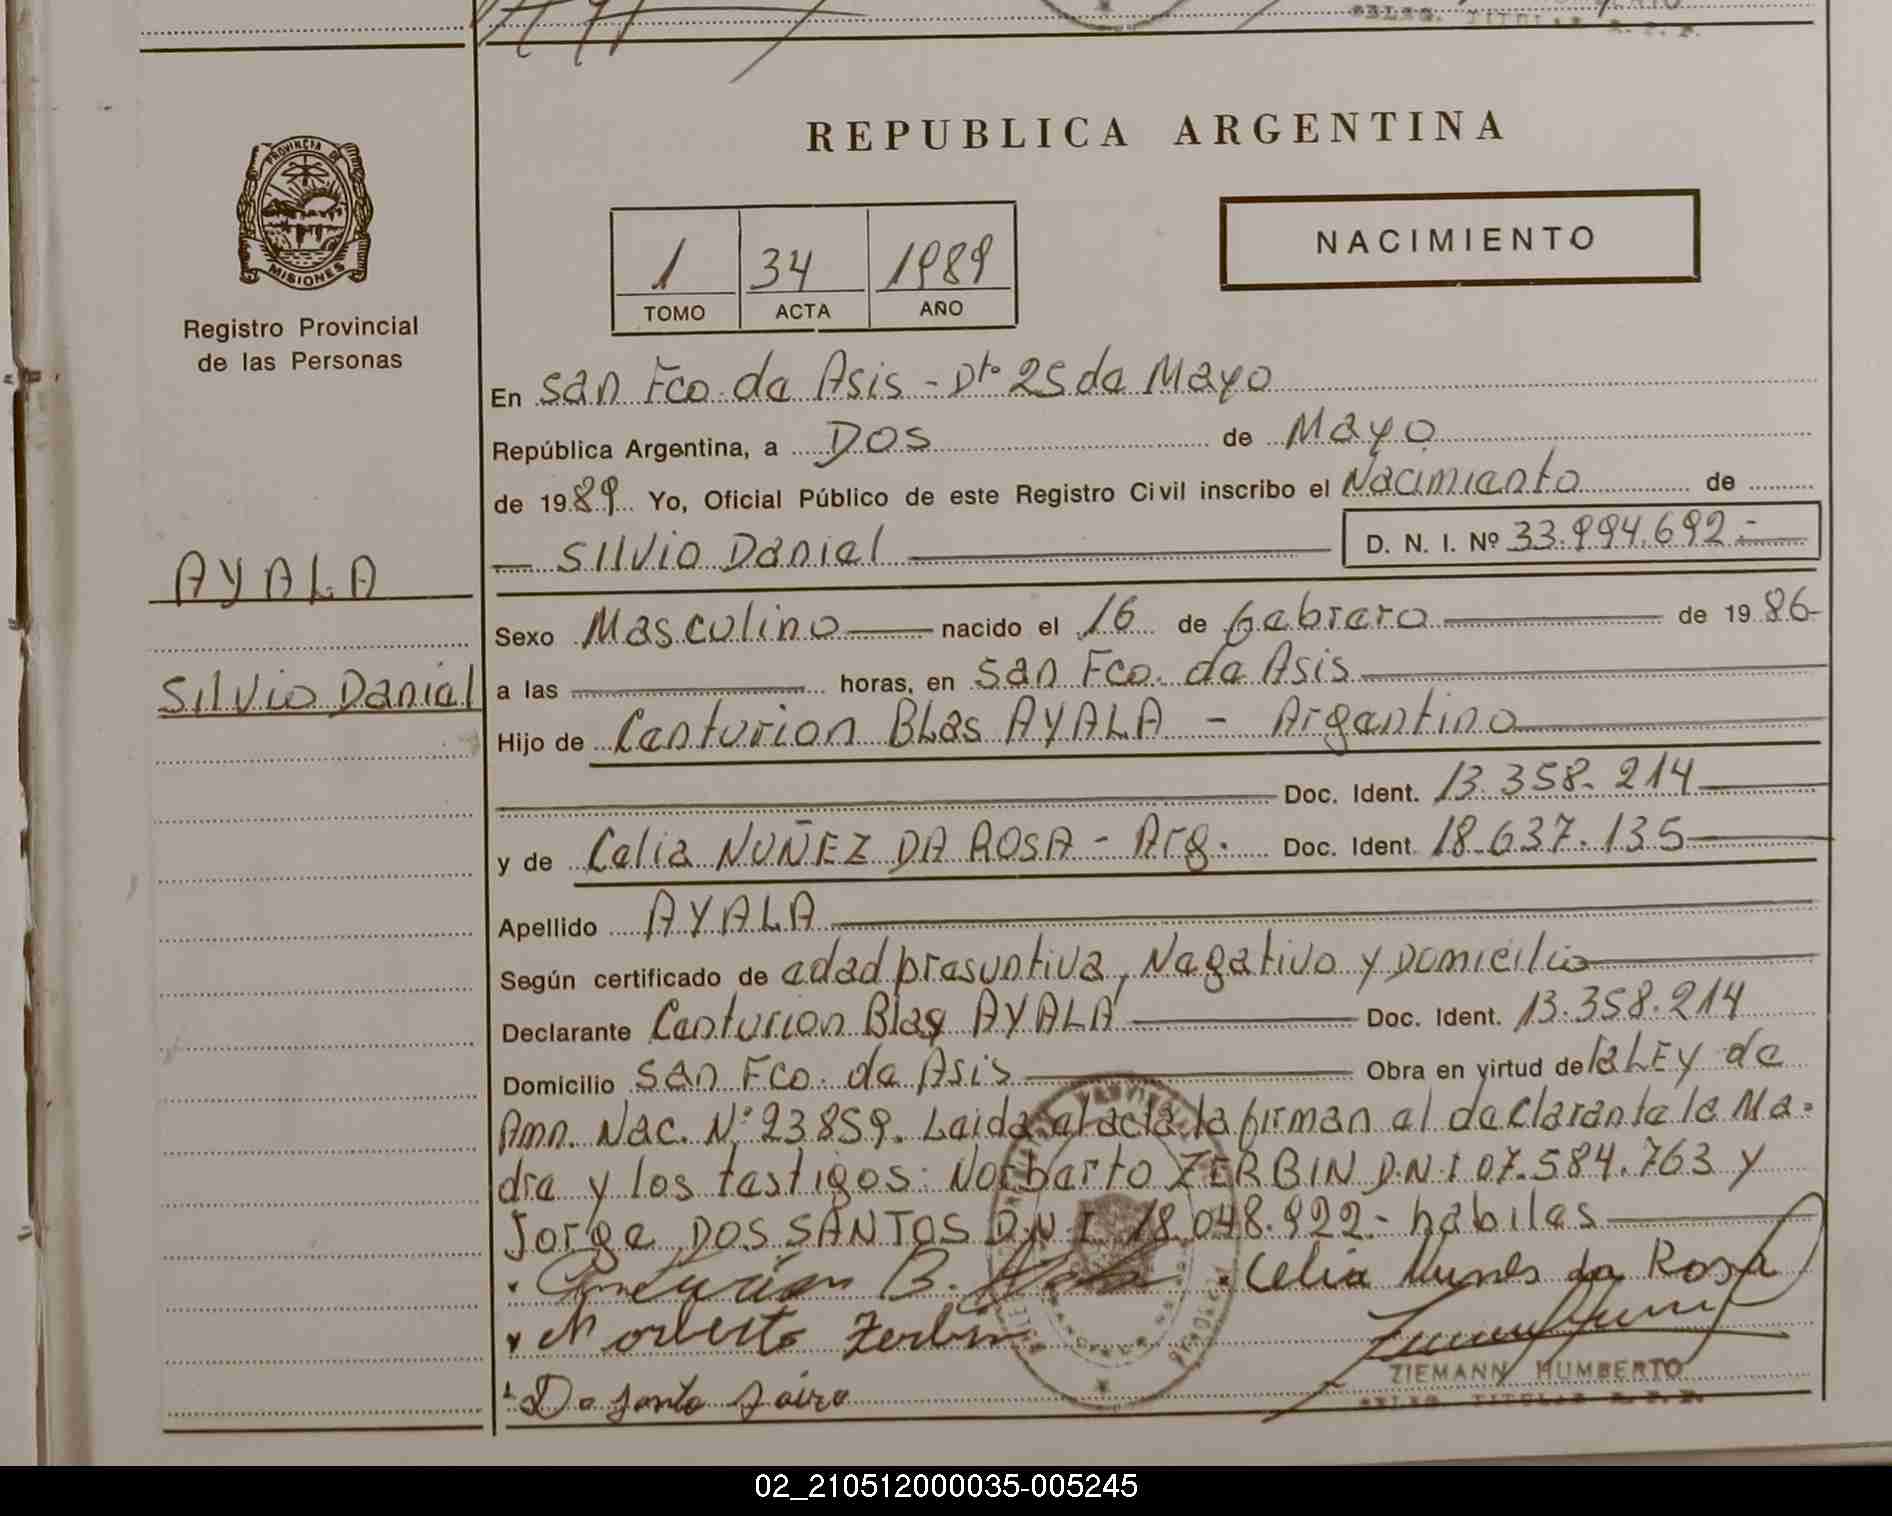 PROVINCIA DE
MISIONES
Registro Provincial
de las Personas
AYALA
Silvio Daniel
REPUBLICA ARGENTINA
1 34 1989
TOMO ACTA AÑO
NACIMIENTO
En San Fco. de Asis - Dto 25 de Mayo
República Argentina, a Dos de Mayo
de 1989 Yo, Oficial Público de este Registro Civil inscribo el Nacimiento de
Silvio Daniel D. N. I. Nº 33.994.692.-
Sexo Masculino nacido el 16 de febrero de 1986-
a las horas, en San Fco. de Asis
Hijo de Centurion Blas AYALA - Argentino
Doc. Ident. 13.358.214
y de Celia NUÑEZ DA ROSA - Arg. Doc. Ident. 18.637.135
Apellido AYALA
Según certificado de edad presuntiva, Negativo y Domicilio
Declarante Centurion Blas AYALA Doc. Ident. 13.358.214
Domicilio San Fco. de Asis Obra en virtud de la LEY de
Amn. Nac. Nº 23859. Leida el acta la firman el declarante la Ma-
dre y los testigos: Norberto ZERBIN D.N.I 07.584.763 y
Jorge DOS SANTOS D.N.I. 18.048.922.- habiles
Centurion B. Ayala Celia Nunes da Rosa
Norberto Zerbin
ZIEMANN HUMBERTO
DELEG. TITULAR R. P. P.
02_210512000035-005245